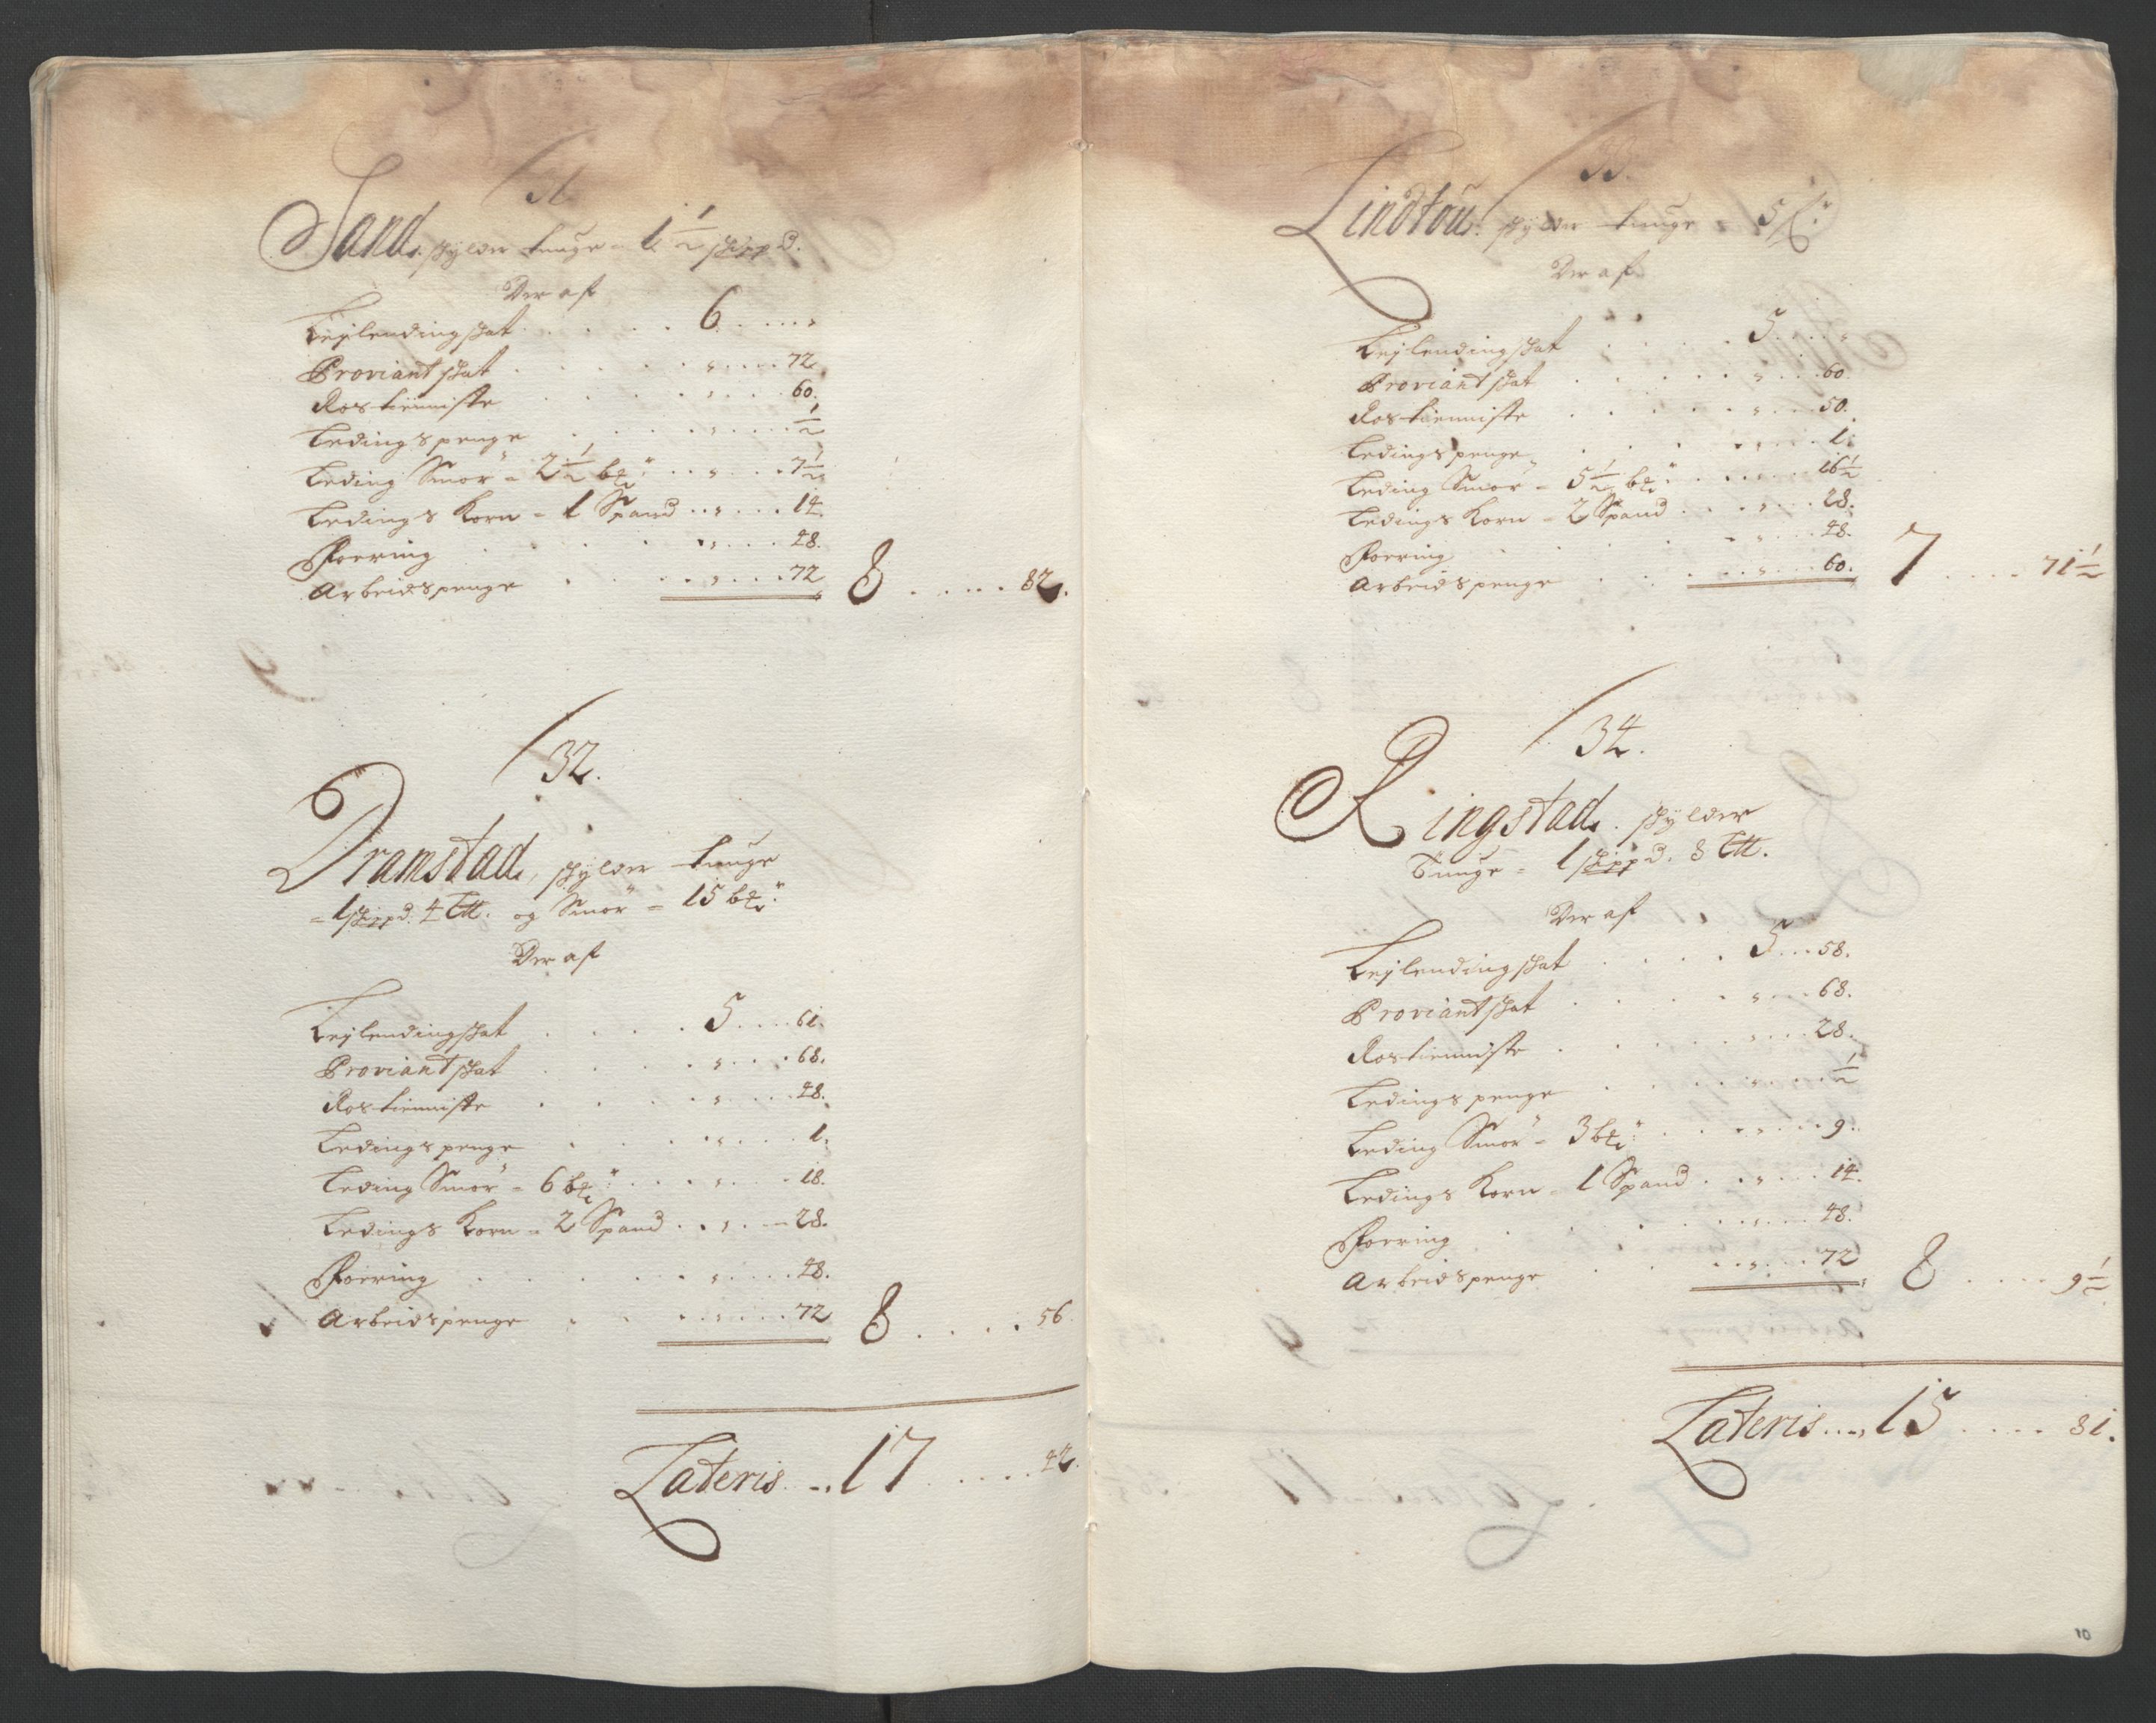 31.
Sand. skylder tunge - 1 1/2 skippd.
Der af
Leylendingskat . . . . . 6 . . . . "
Proviantskat . . . . . " . . . . 72
Rostienniste . . . . . " . . . . 60.
Ledingspenge . . . . . " . . . . 1/2
Leding Smör - 2 1/2 btr: . . " . . . 7 1/2
Ledings Korn - 1 Spand . . " . . . 14.
Foering . . . . . " . . . 48.
Arbeidspenge . . . . . " . . . 72 8 . . . . . 82.
32.
Dramstad, skylder tunge
= 1 skippd. 4 ltt. og Smör = 15 btr:
Der af
Leylendingskat . . . . 5 . . . . 61.
Proviantskat . . . . . " . . . . 68.
Rostienniste . . . . . " . . . . 48.
Ledingspenge . . . . . " . . . . 1.
Leding Smör - 6 btr: . . . . " . . . 18.
Ledings Korn - 2 Spand . . . " . . 28.
Foering . . . . . . " . . . . 48.
Arbeidspenge . . . . . " . . . . 72 8 . . . . 56
Lateris . . . 17 . . . . 42.
33.
Lindtou. skylder tunge = 5
Der af
Leylendingskat . . . . . 5 . . . . "
Proviantskat . . . . . " . . . 60.
Rostienniste . . . . . " . . . 50.
Ledingspenge . . . . . " . . . 1.
Leding Smör - 5 1/2 btr: . . . . . 16 1/2
Ledings Korn - 2 Spand . . . " . . . 28.
Foering . . . . . " . . . 48.
Arbeidspenge . . . . . " . . . 60. 7 . . . . 71 1/2
34.
Ringstad. skylder
Tunge = 1 skippd. 8 ltt.
Der af
Leylendingskat . . . . 5 . . . 58.
Proviantskat . . . . . " . . . 68.
Rostienniste . . . . . " . . . 28.
Ledingspenge . . . . . " . . . 1/2
Leding Smör - 3 btr: . . . . " . . . 9.
Ledings Korn - 1 Spand . . " . . . 14.
Foering . . . . . " . . . 48.
Arbeidspenge . . . . . " . . . 72 8 . . . . 9 1/2
Lateris . . . 15 . . . . 81.
10